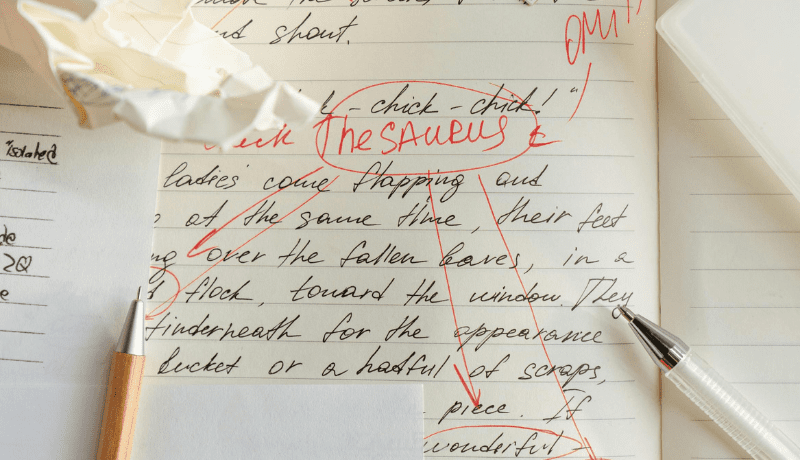 the
shout.
OMIT
- chick - chick!"
THESAURUS
ladies' come flapping and
at the same time, their feet
over the fallen leaves, in a
flock, toward the window. They
underneath for the appearance
bucket or a hatful of scraps,
piece. If
wonderful -
isolated
2Q